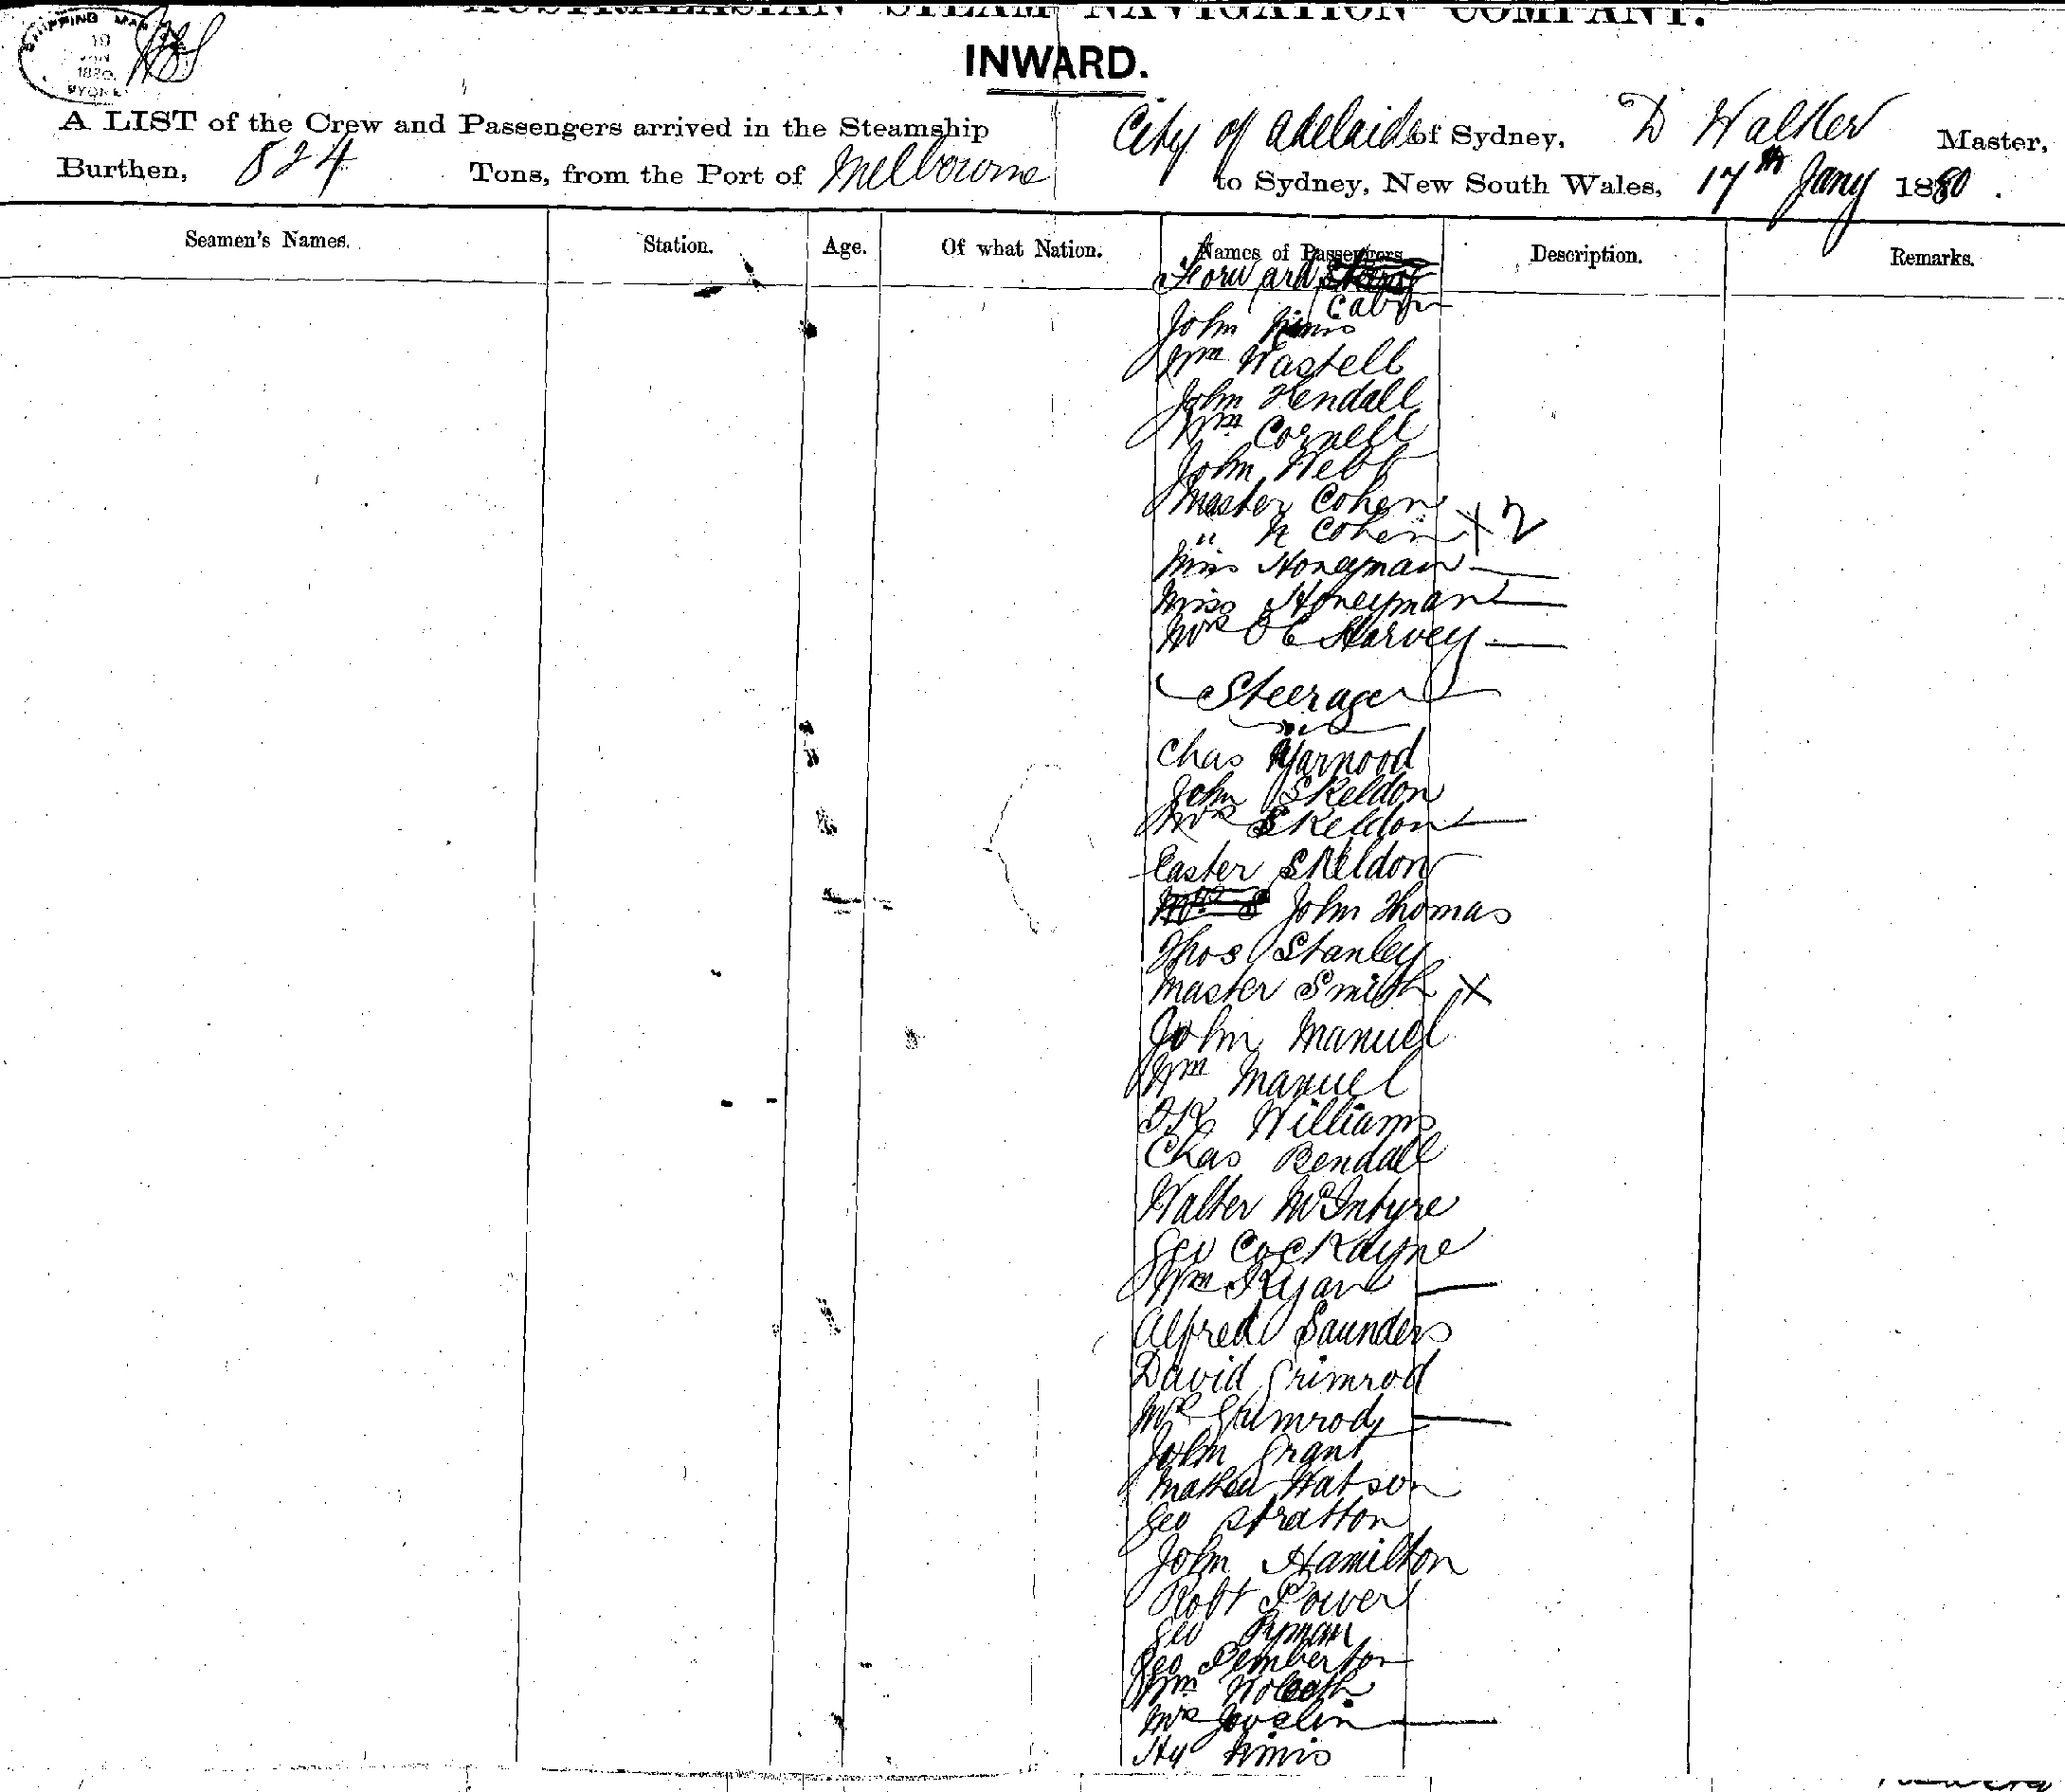 AUSTRALASIAN STEAM NAVIGATION COMPANY.
INWARD.
SHIPPING MAS
19
JAN
1880
A LIST of the Crew and Passengers arrived in the Steamship City of Adelaide of Sydney, D Walker Master,
Burthen, 824 Tons, from the Port of Melbourne to Sydney, New South Wales, 17th Jany 1880.
Seamen's Names. Station. Age. Of what Nation. Names of Passengers Description. Remarks.
Forward
Cabin
John
Wm Wastell
John Kendall
Wm Cornell
John Webb
Master Cohen
" N Cohen x 2
Miss Honeyman
Miss Honeyman
Mrs Harvey
Steerage
Chas Yarnood
John Skeldon
Mrs Skeldon
Easter Skeldon
John Thomas
Thos Stanley
Master Smith x
John Manuel
Wm Manuel
Williams
Chas Bendall
Walter McIntyre
Geo Cockayne
Wm Ryan
Alfred Saunders
David Grimrod
Mrs Grimrod
John Grant
Watson
Geo Stratton
John Hamilton
Robt Power
Geo Ryman
Geo Pemberton
Wm
Mrs Joyslin
Hy